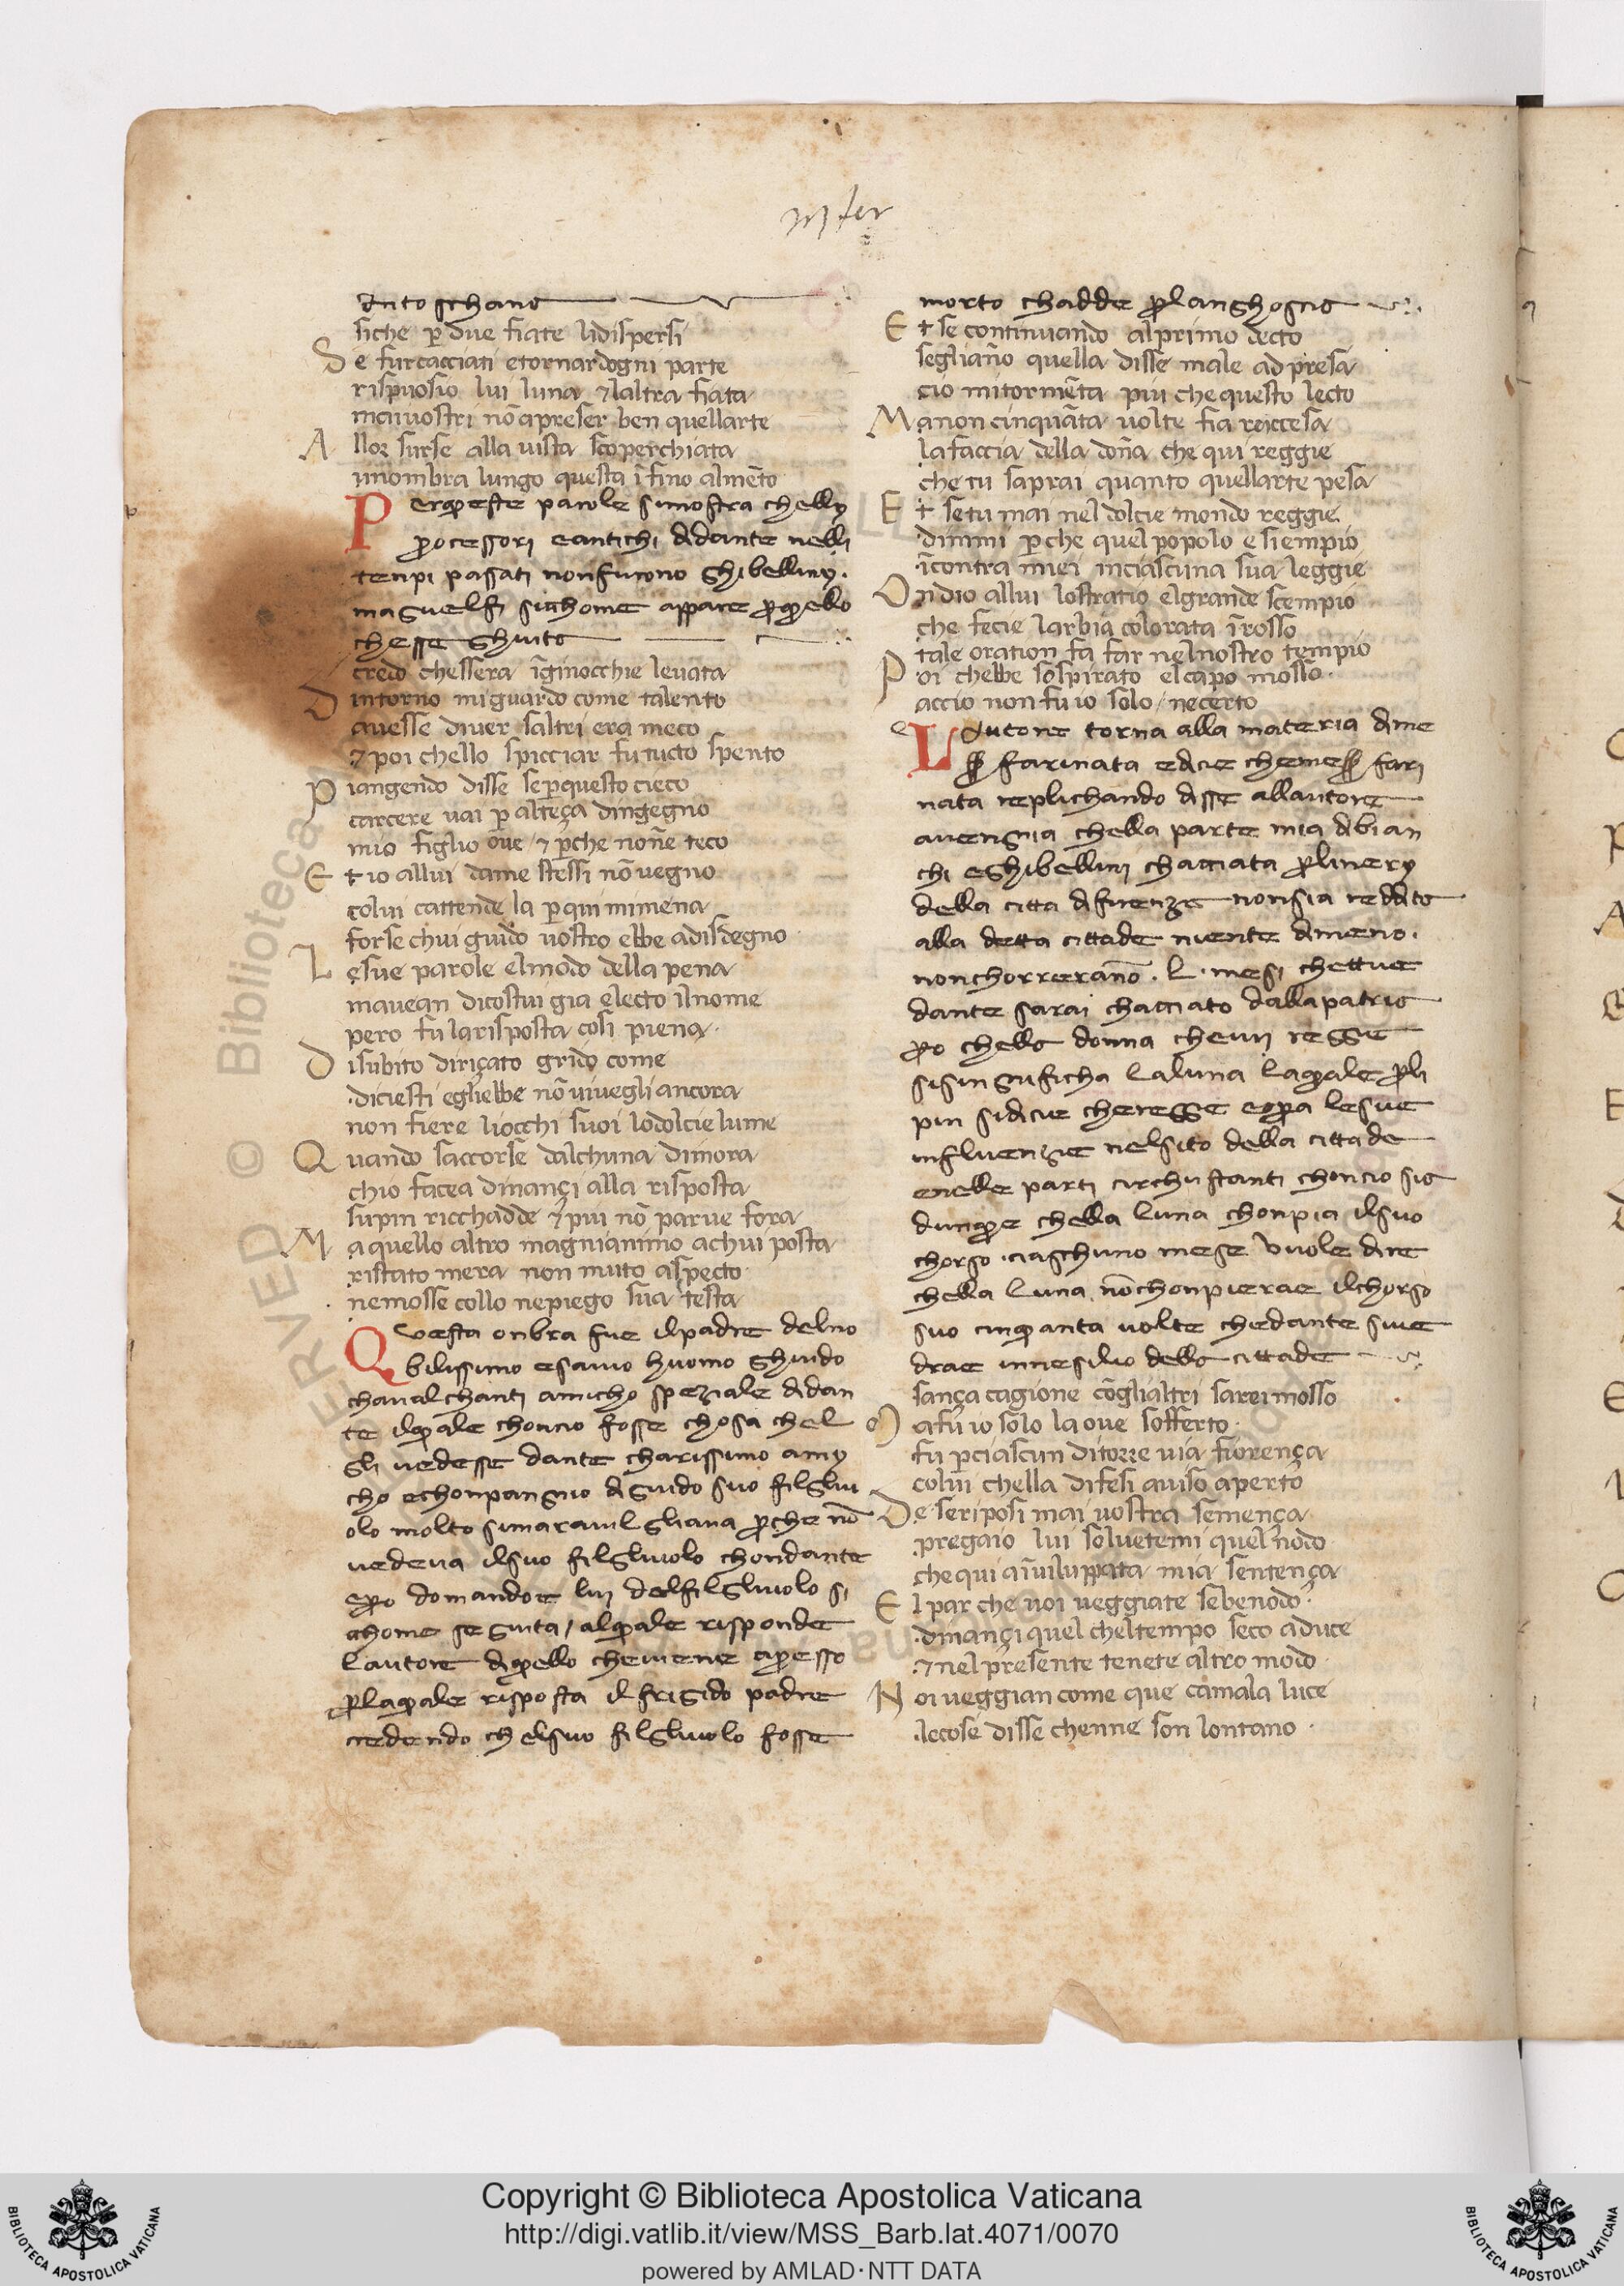 Inf er
in toschano
siche p̄ due fiate lidispersi
Se fur cacciati e tornar dogni parte
rispuosio lui luna ⁊ laltra fiata
ma i uostri nō apreser ben quellarte
Allor surse alla uista scoperchiata
unombra lungo questa īfino almēto
Per queste parole simostra chelly
p̄ocessori eantichi didante nelli
tenpi passati non furono ghibelliny.
ma guelfi sicchome appare p̄ quello
chesse ghuito
credo chessera īginocchie leuata
Dintorno mi guardo come talento
auesse diuer saltri era meco
⁊ poi chello spicciar fu tucto spento
Piangendo disse se p̄ questo cieco
carcere uai p̄ alteça dingegno
mio figlio oue / ⁊ p̄che nonē teco
Et io allui dame stessi nō uegno
colui cattende la p̄ qui mimena
forse chui guido uostro ebbe adisdegno
Le sue parole elmodo della pena
mauean dicostui gia electo ilnome
pero fu la risposta cosi piena
Disubito diriçato grido come
diciesti egliebbe nō uiuegli ancora
non fiere liocchi suoi lo dolcie lume
Quando saccorse dalchuna dimora
chio facea dinançi alla risposta
supin ricchadde ⁊ piu nō parue fora
Ma quello altro magnianimo achui posta
ristato mera non muto aspecto
ne mosse collo ne piego sua testa
Questa onbra fue ilpadre delno
bilissimo esauio huomo ghuido
chaualchanti amicho speziale didan
te ilquale choncio fosse chosa chel
gli uedesse dante charissimo amy
cho echonpangnio di guido suo figliu
olo molto simarauigliaua p̄che nō
uedeua ilsuo figliuolo chondante
epero domandone lui delfigliuolo si
chome seguita / alquale risponde
lautore di quello cheuiene apresso
p̄ laquale risposta il frigido padre
credendo chelsuo figliuolo fosse
morto chadde p̄ langhoscia
Et se continuando alprimo decto
segliāno quella disse male adpresa
cio mi tormēta piu che questo lecto
Ma non cinquāta uolte fia racciesa
la faccia della doña che qui reggie
che tu saprai quanto quellarte pesa
Et se tu mai nel dolcie mondo reggie
dimmi p̄che quel popolo e si empio
īcontra miei inciascuna sua leggie
Ondio allui lo stratio elgrande scempio
che fecie larbia colorata ī rosso
tale oration fa far nelnostro tempio
Poi chebbe sospirato elcapo mosso
accio non fu io solo / ne certo
Lautore torna alla materia dime
ss̄ farinata edicie chemess̄ fari
nata replichando disse allautore
auengnia chella parte mia dibian
chi eghibellini chacciata p̄ lineri
della citta difirenze nonsia reddita
alla detta cittade niente dimeno.
nonchorrerano. L. mesi chettue
dante sarai chacciato dalla patria
p̄o chella donna cheuij regge
sisingnificha la luna laquale p̄ li
piu sidicie cheregge eopera lesue
influenzie nelsito della cittade
enelle parti circhustanti choncio sia
dunque chella luna chonpia ilsuo
chorso. ciaschuno mese Vuole dire
chella luna nōchonpierae ilchorso
suo cinquanta uolte chedante siue
drae innesilio della cittade
sança cagione cōglialtri sarei mosso
Ma fu io solo la oue sofferto
fu p̄ ciascun di torre uia fiorença
colui chella difesi auiso aperto
De se riposi mai uostra semença
pregaio lui soluetemi quel nodo
che qui a īuiluppata mia sentença
El par che uoi ueggiate se benodo
dinançi quel cheltempo seco aduce
⁊ nel presente tenete altro modo
Noi ueggian come que camala luce
lecose disse chenne son lontano
Copyright © Biblioteca Apostolica Vaticana
http://digi.vatlib.it/view/MSS_Barb.lat.4071/0070
powered by AMLAD·NTT DATA
BIBLIOTECA APOSTOLICA VATICANA
BIBLIOTECA APOSTOLICA VATICANA